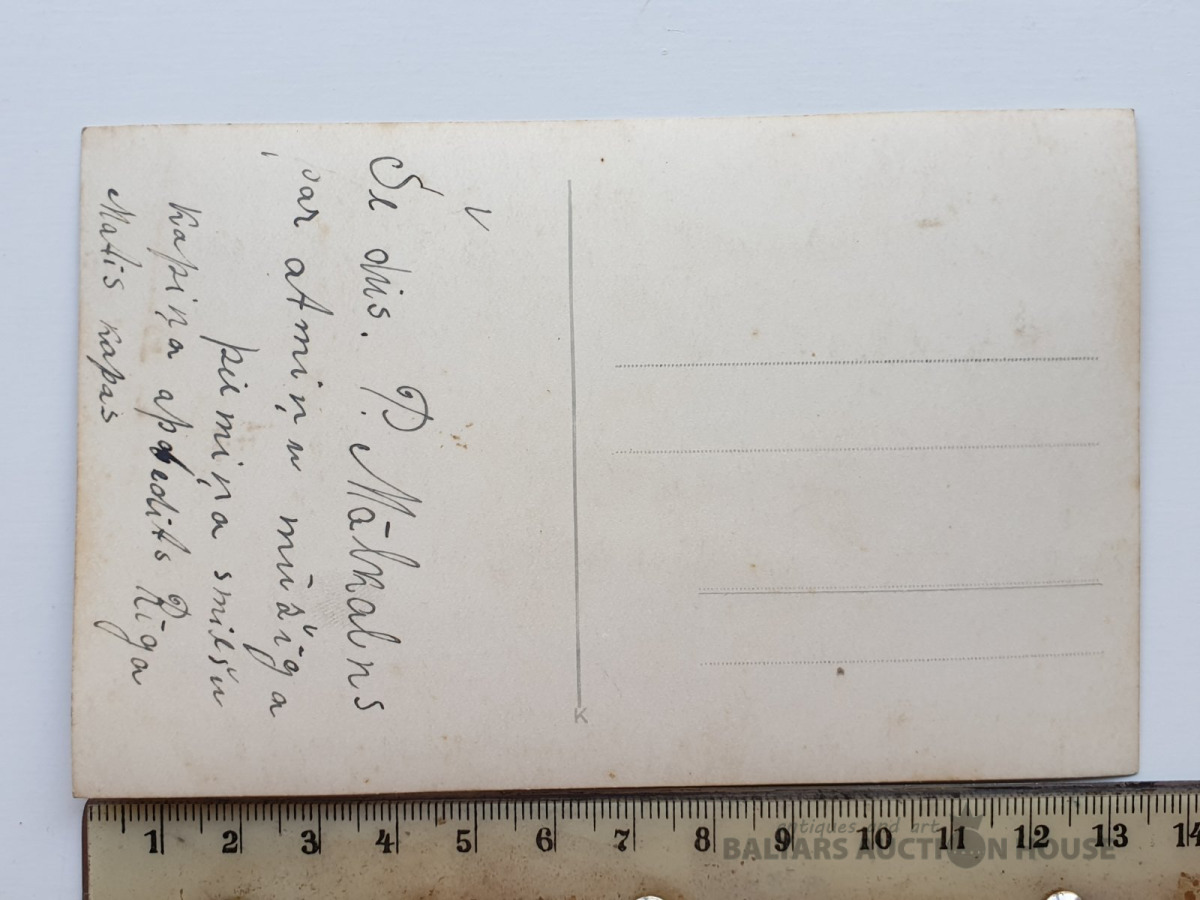 Še dus. P. Mālkalns
var atmiņu mūžiga
piemiņa smilšu
Kapiņa apbedits Rīga
Matis kapos
K
1 2 3 4 5 6 7 8 9 10 11 12 13 14
antiques and art
BALTARS AUCTION HOUSE